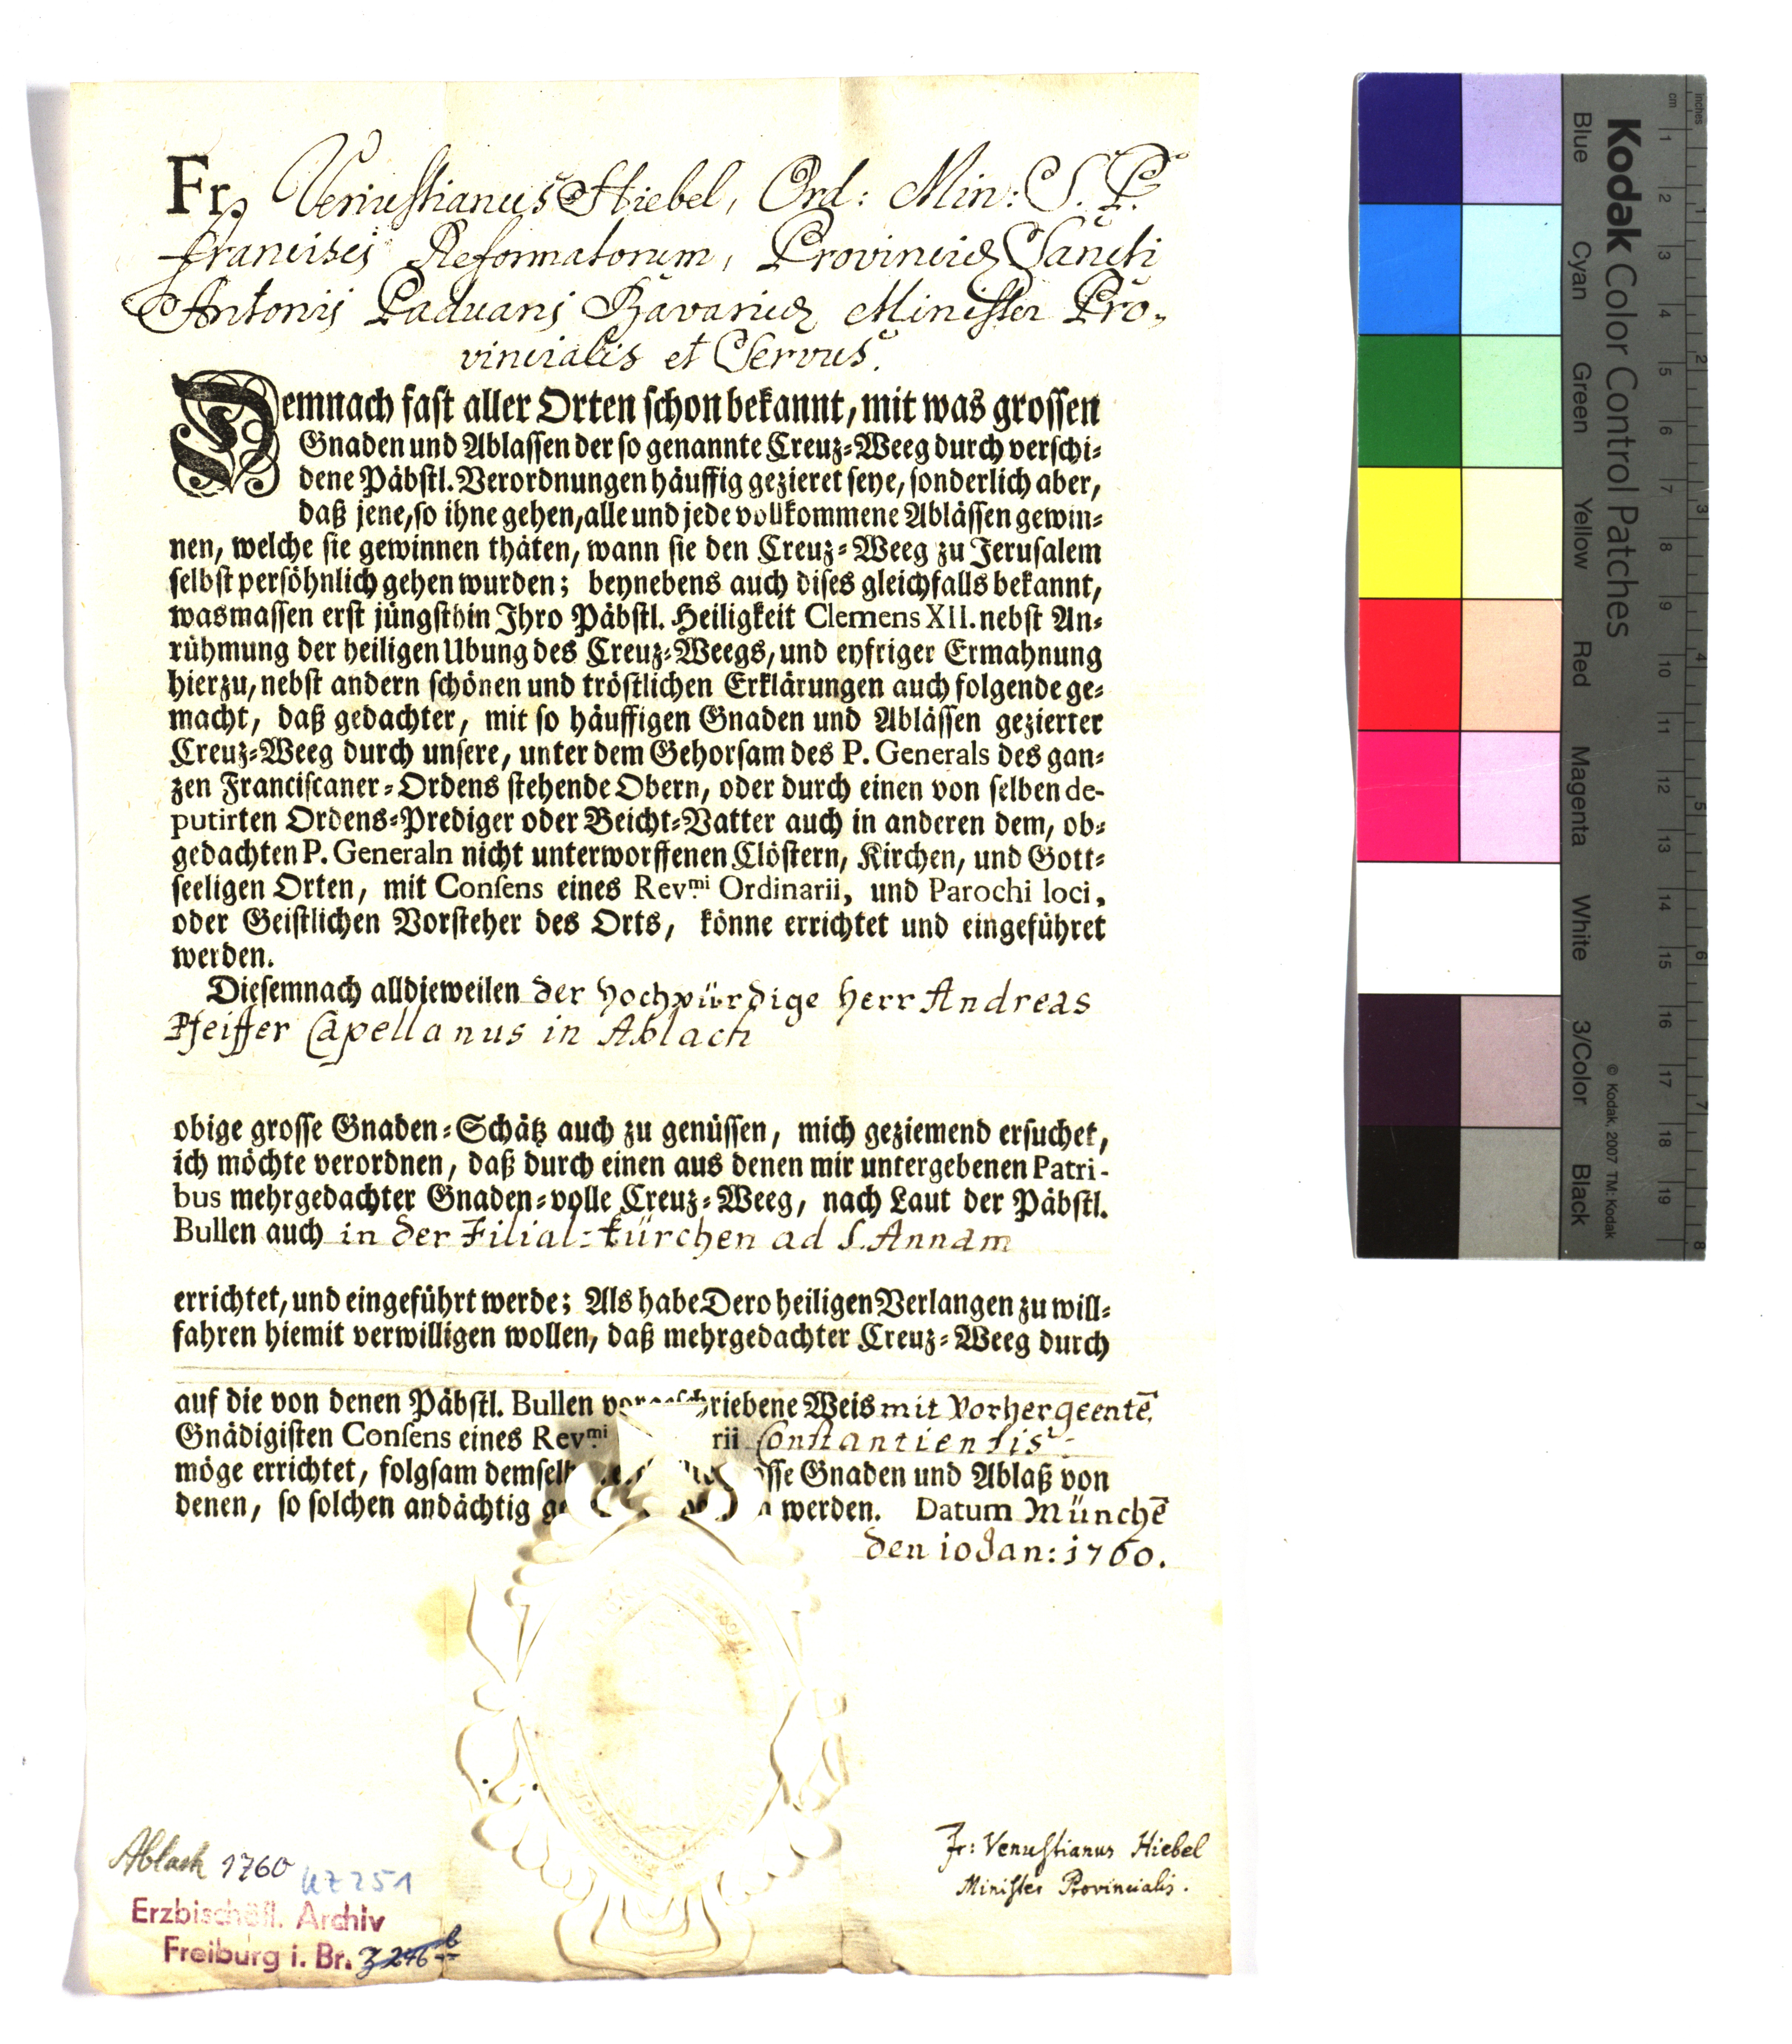 Fr. Venustianus Hiebel, Ord: Min: S. P.
Francisci Reformatorum, Provinciæ Sancti
Antonij Paduani Bavariæ Minister Pro-
vincialis et Servus.
Demnach fast aller Orten schon bekannt, mit was grossen
Gnaden und Ablassen der so genannte Creuz-Weeg durch verschi-
dene Päbstl. Verordnungen häuffig gezieret seye, sonderlich aber,
daß jene, so ihne gehen, alle und jede vollkommene Ablässen gewin-
nen, welche sie gewinnen thäten, wann sie den Creuz-Weeg zu Jerusalem
selbst persöhnlich gehen wurden; beynebens auch dises gleichfalls bekannt,
wasmassen erst jüngsthin Ihro Päbstl. Heiligkeit Clemens XII. nebst An-
rühmung der heiligen Ubung des Creuz-Weegs, und eyfriger Ermahnung
hierzu, nebst andern schönen und tröstlichen Erklärungen auch folgende ge-
macht, daß gedachter, mit so häuffigen Gnaden und Ablässen gezierter
Creuz-Weeg durch unsere, unter dem Gehorsam des P. Generals des gan-
zen Franciscaner-Ordens stehende Obern, oder durch einen von selben de-
putirten Ordens-Prediger oder Beicht-Vatter auch in anderen dem, ob-
gedachten P. Generaln nicht unterworffenen Clöstern, Kirchen, und Gott-
seeligen Orten, mit Consens eines Rev.mi Ordinarii, und Parochi loci,
oder Geistlichen Vorsteher des Orts, könne errichtet und eingeführet
werden.
Diesemnach alldieweilen der hochwürdige herr Andreas
Pfeiffer Capellanus in Ablach
obige grosse Gnaden-Schätz auch zu genüssen, mich geziemend ersuchet,
ich möchte verordnen, daß durch einen aus denen mir untergebenen Patri-
bus mehrgedachter Gnaden-volle Creuz-Weeg, nach Laut der Päbstl.
Bullen auch in der Filial-kürchen ad S. Annam
errichtet, und eingeführt werde; Als habe Dero heiligen Verlangen zu will-
fahren hiemit verwilligen wollen, daß mehrgedachter Creuz-Weeg durch
auf die von denen Päbstl. Bullen vorgeschriebene Weis mit vorhergeentē
Gnädigisten Consens eines Rev.mi rii Constantiensis
möge errichtet, folgsam demselb sse Gnaden und Ablaß von
denen, so solchen andächtig ge werden. Datum Münchē
den 10 Jan: 1760.
Fr: Venustianus Hiebel
Minister Provincialis.
Ablach 1760
UZ 251
Erzbischöfl. Archiv
Freiburg i. Br.
Kodak Color Control Patches
© Kodak, 2007 TM: Kodak
Blue Cyan Green Yellow Red Magenta White 3/Color Black
cm 1 2 3 4 5 6 7 8 9 10 11 12 13 14 15 16 17 18 19
inches 1 2 3 4 5 6 7 8